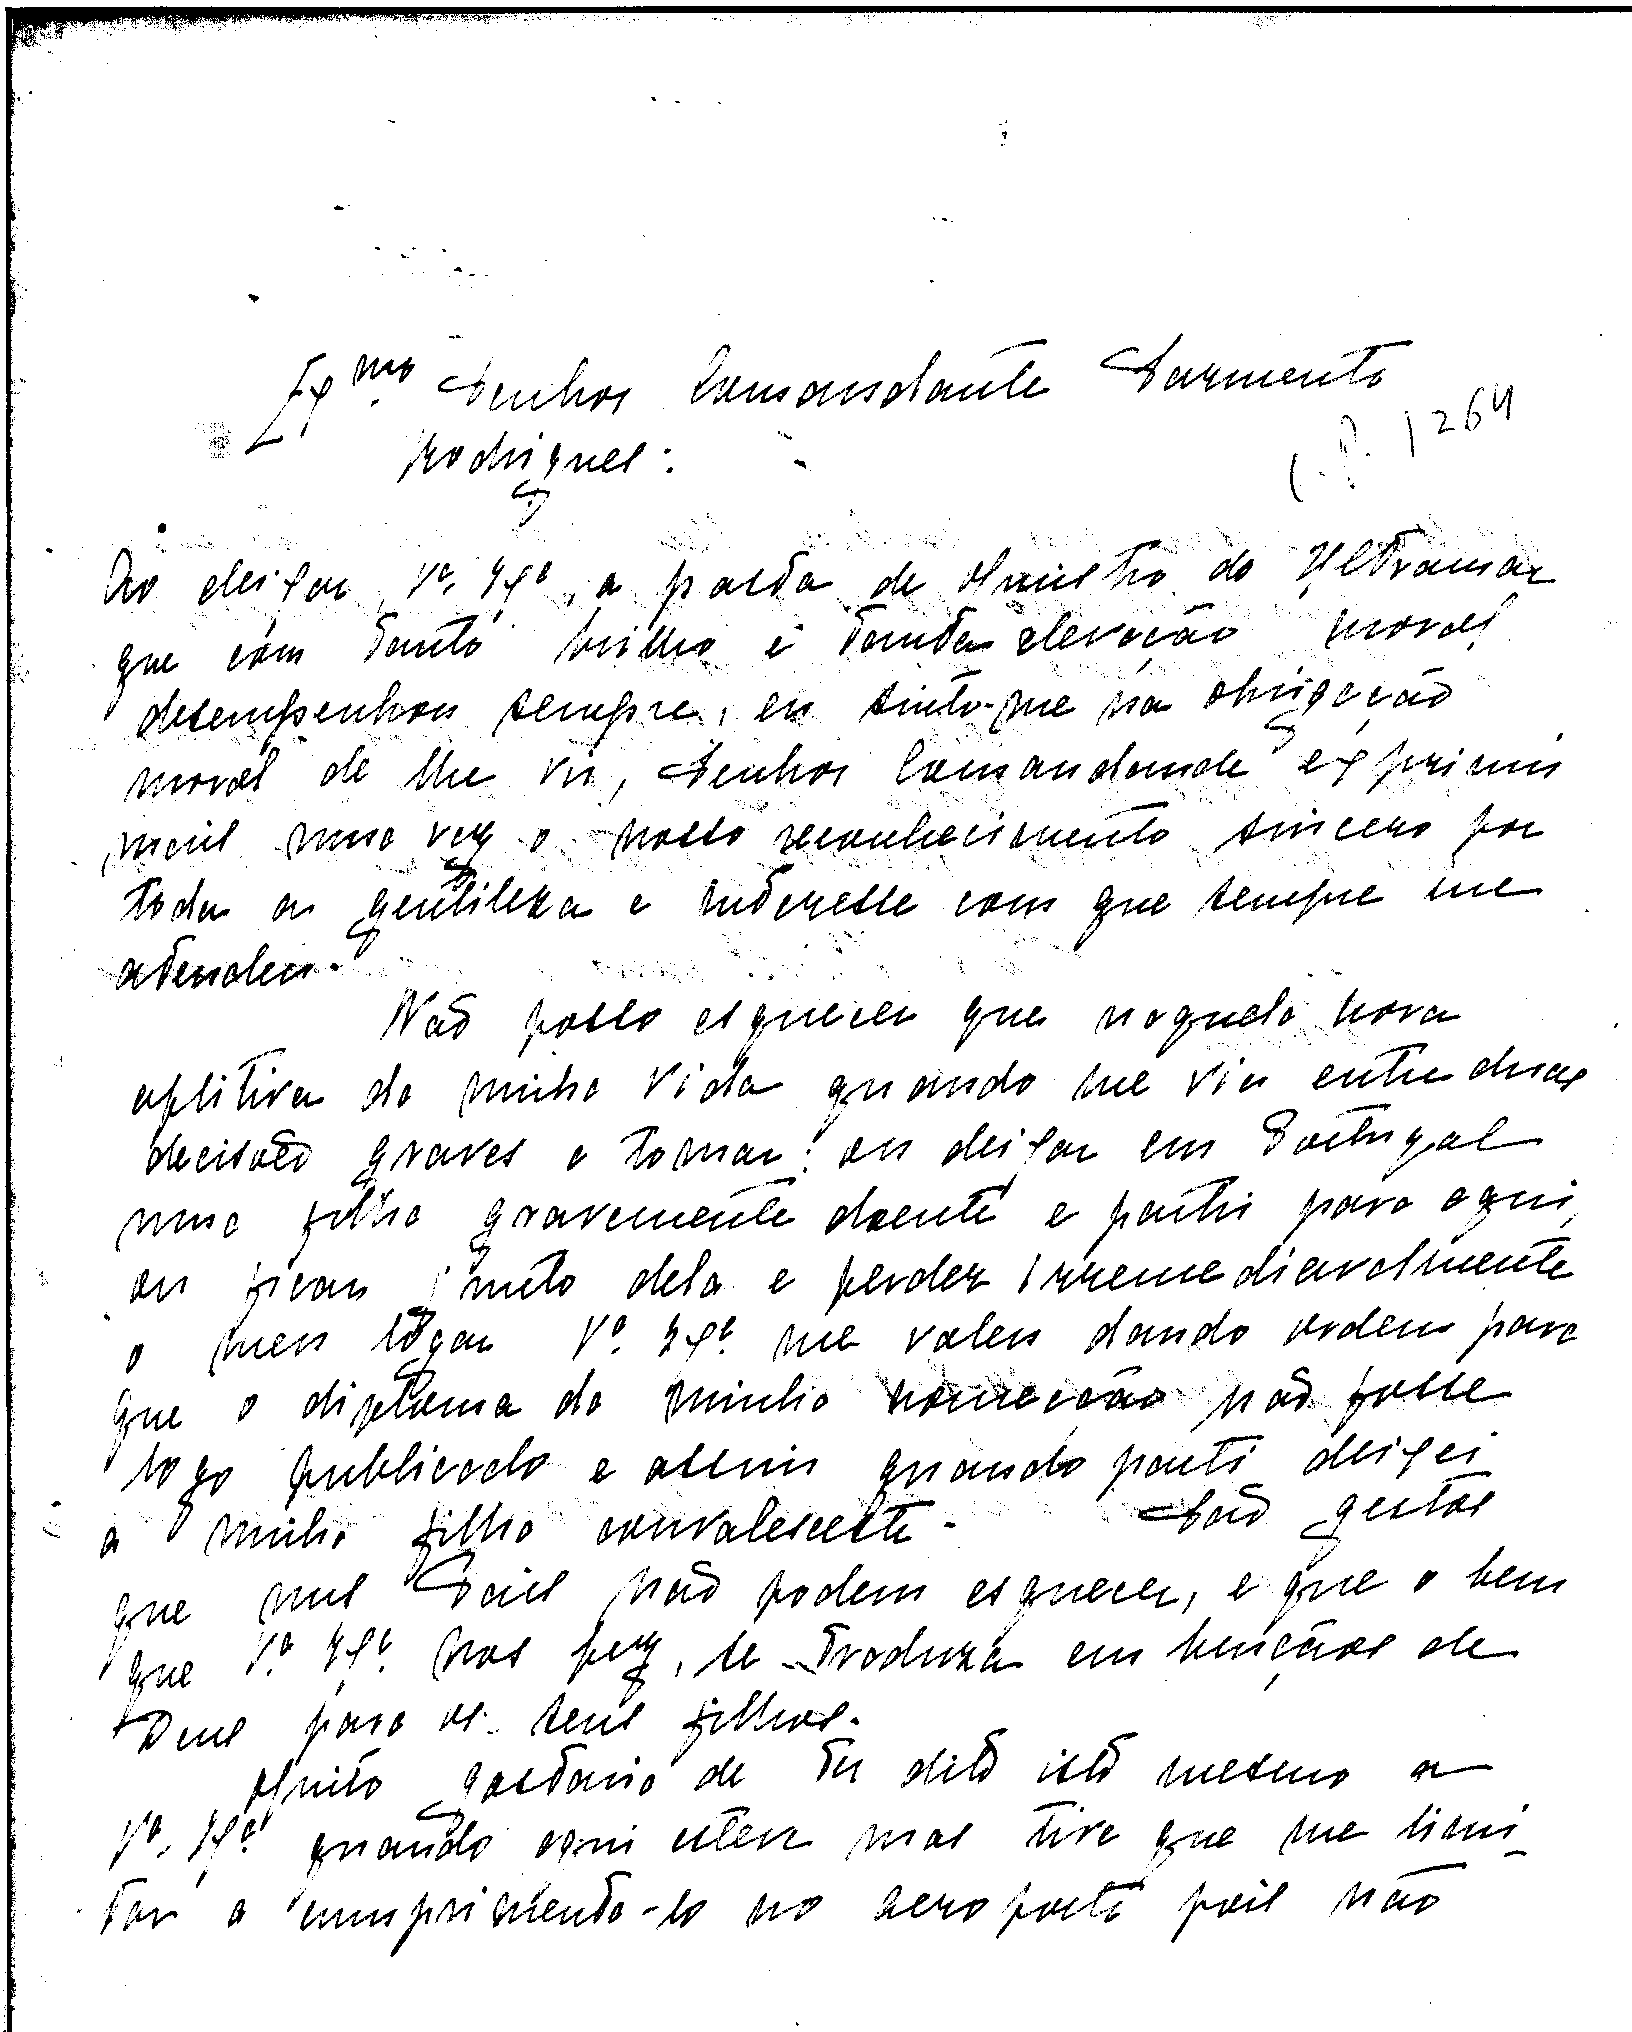 Exmo Senhor Comandante Sarmento
Rodrigues:
C.P. 1264
Ao deixar Vª. Exª, a pasta de Ministro do Ultramar
que com tanto brilho e tanta elevação moral
desempenhou sempre, eu sinto-me na obrigação
moral de lhe vir, Senhor Comandande exprimir
mais uma vez o nosso reconhecimento sincero por
toda a gentileza e interesse com que sempre me
atendeu.
Não posso esquecer que naquela hora
aflitiva da minha vida quando me via entre duas
decisões graves a tomar: ou deixar em Portugal
uma filha gravemente doente e partir para aqui,
ou ficar junto dela e perder irremediavelmente
o meu lugar Vª. Exª. me valeu dando ordem para
que o diploma da minha nomeação não fosse
logo publicado e assim quando parti deixei
a minha filha convalescente. São gestos
que uns Pais não podem esquecer, e que o bem
que Vª. Exª. nos fez, se traduza em bençãos de
Deus para os seus filhos.
Muito gostaria de ter dito isto mesmo a
Vª. Exª. quando aqui esteve mas tive que me limi-
tar a cumprimenta-lo no aeroporto pois não